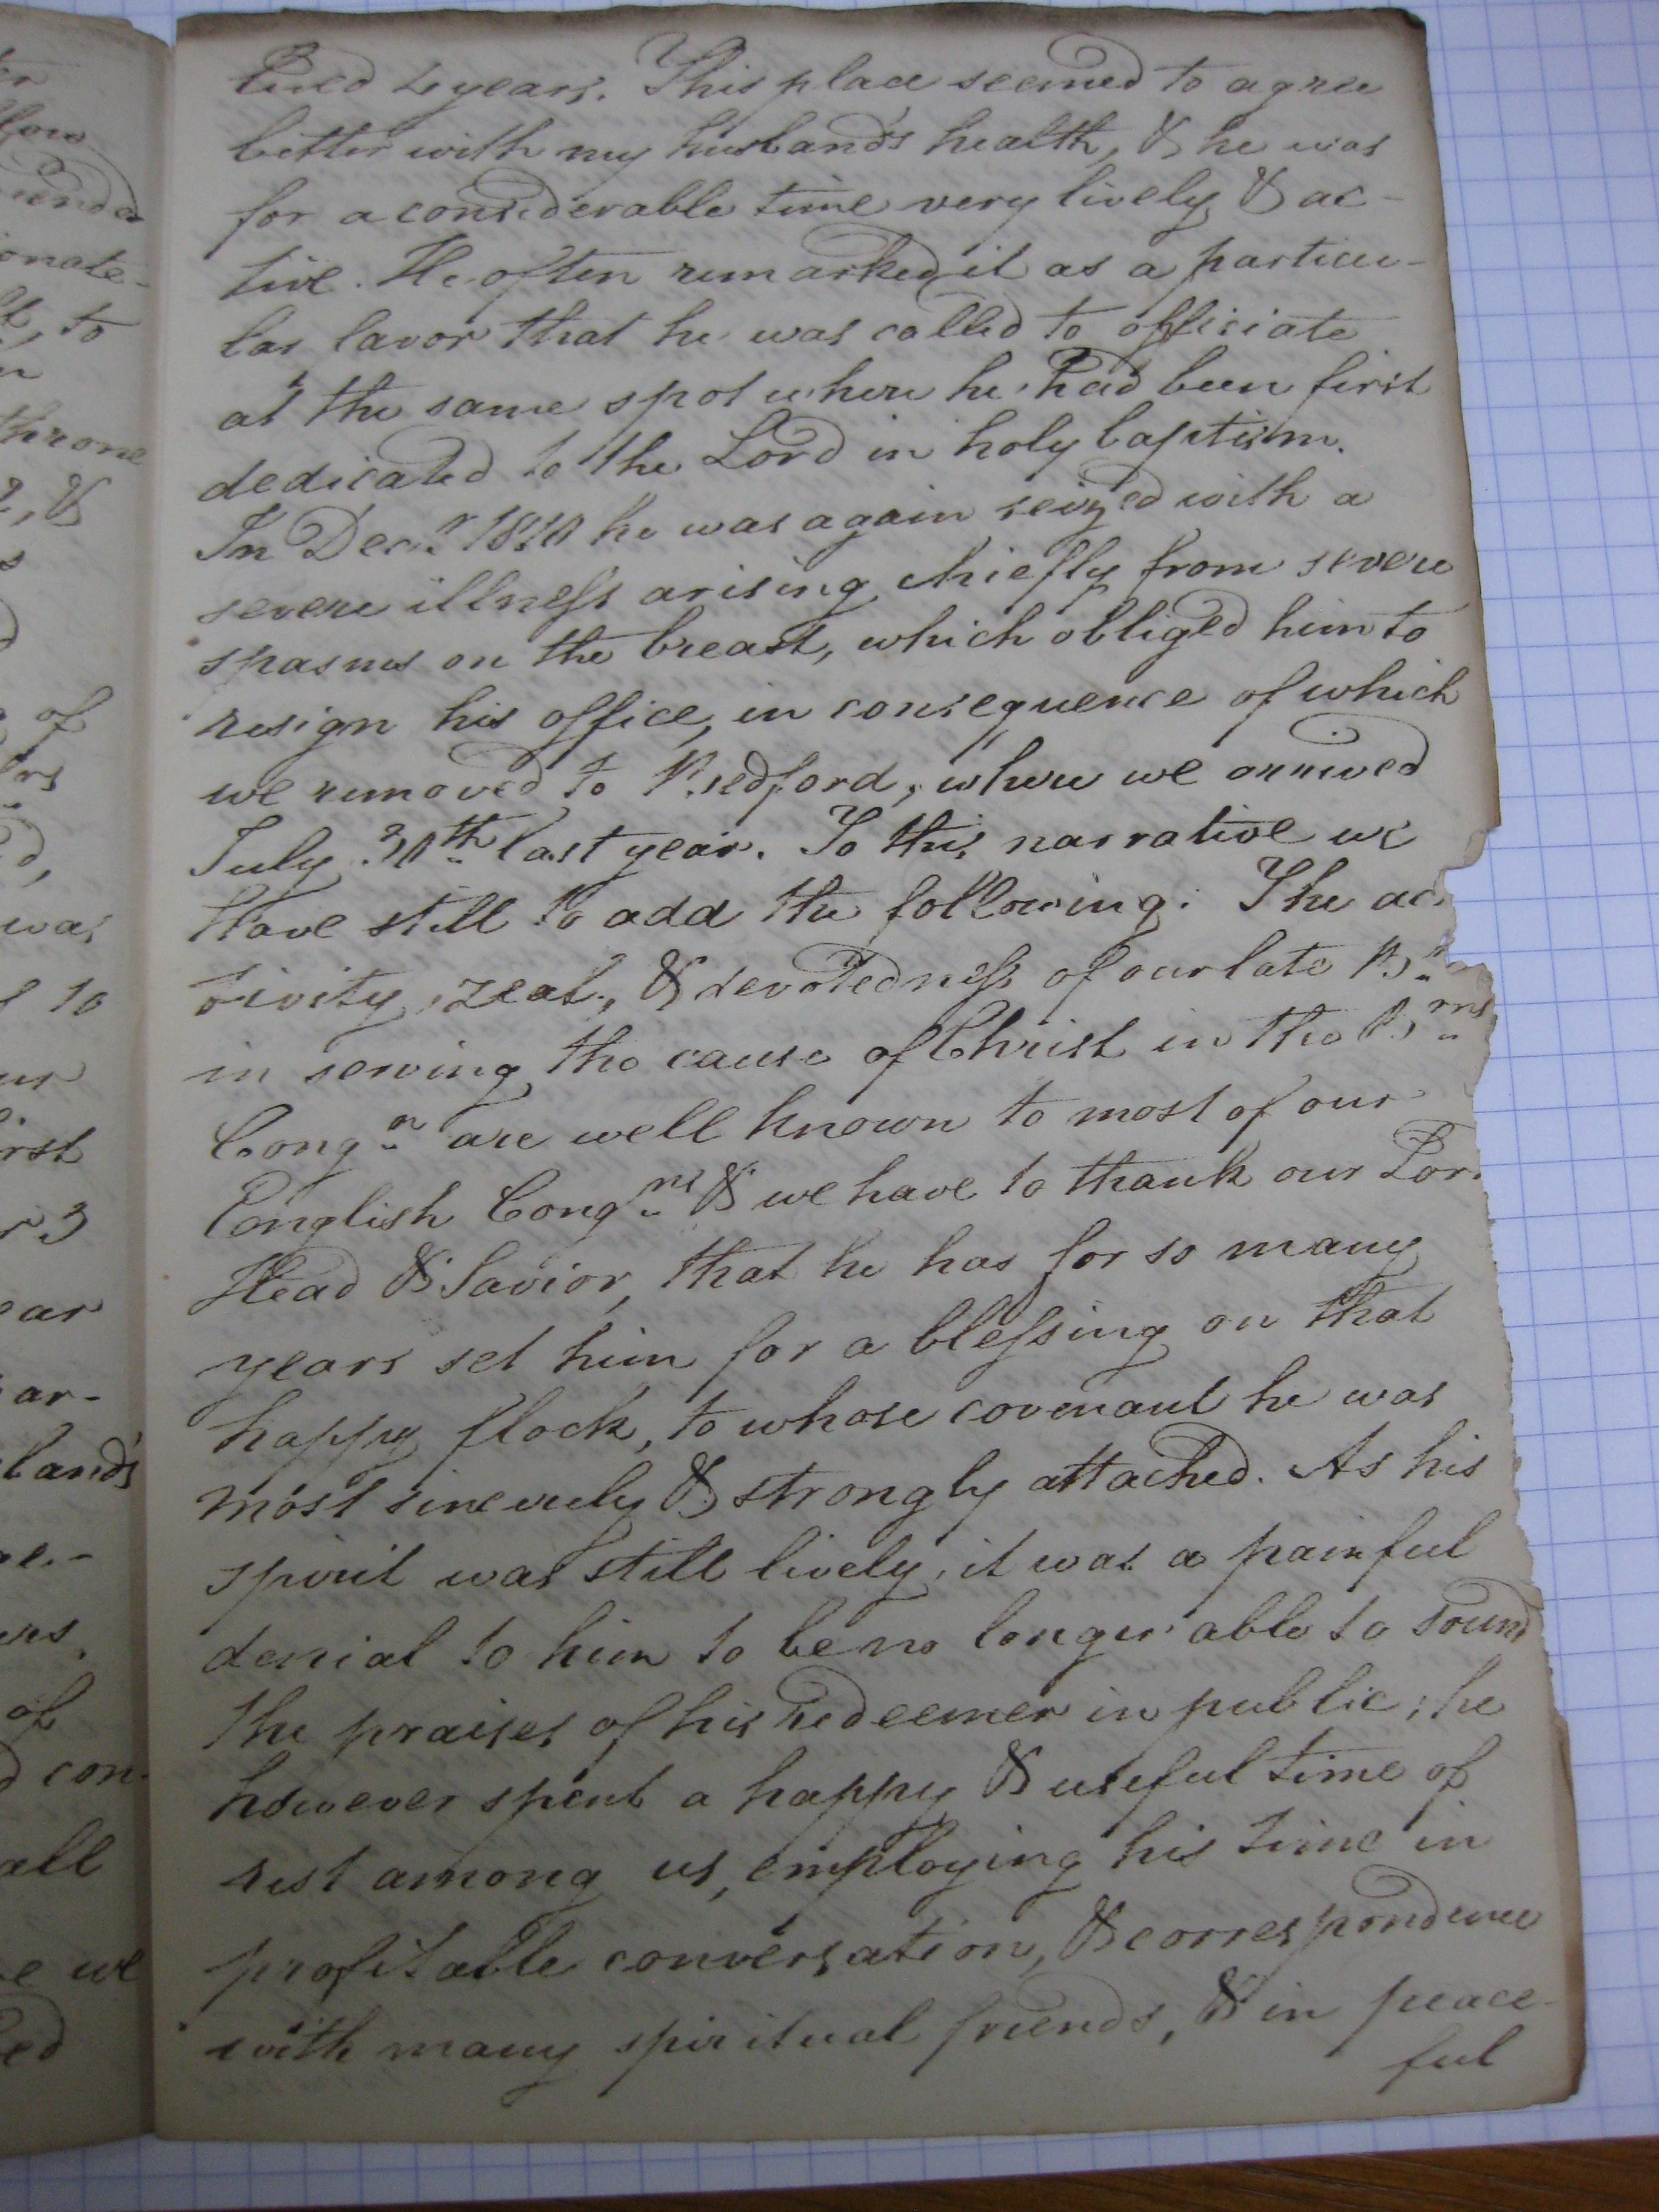 lived 4 years. This place seemed to agree
better with my husband's health, & he was
for a considerable time very lively & ac-
tive. He often remarked it as a particu-
lar favor that he was called to officiate
at the same spot where he had been first
dedicated to the Lord in holy baptism.
In Decr 1810 he was again seized with a
severe illness arising chiefly from severe
spasms on the breast, which obliged him to
resign his office, in consequence of which
we removed to Bedford, where we arrived
July 30th last year. To this narrative we
have still to add the following: The ac
tivity, zeal, & devotedness of our late Br
in serving the cause of Christ in the Brns
Congn are well known to most of our
English Congns & we have to thank our Lor
Head & Savior, that he has for so many
years set him for a blessing on that
happy flock, to whose covenant he was
most sincerely & strongly attached. As his
spirit was still lively, it was a painful
denial to him to be no longer able to sound
the praises of his redeemer in public; he
however spent a happy & useful time of
rest among us, employing his time in
profitable conversation, & correspondence
with many spiritual friends, & in peace-
ful
throne
&
of
was
10
ar-
of
con-
all
we